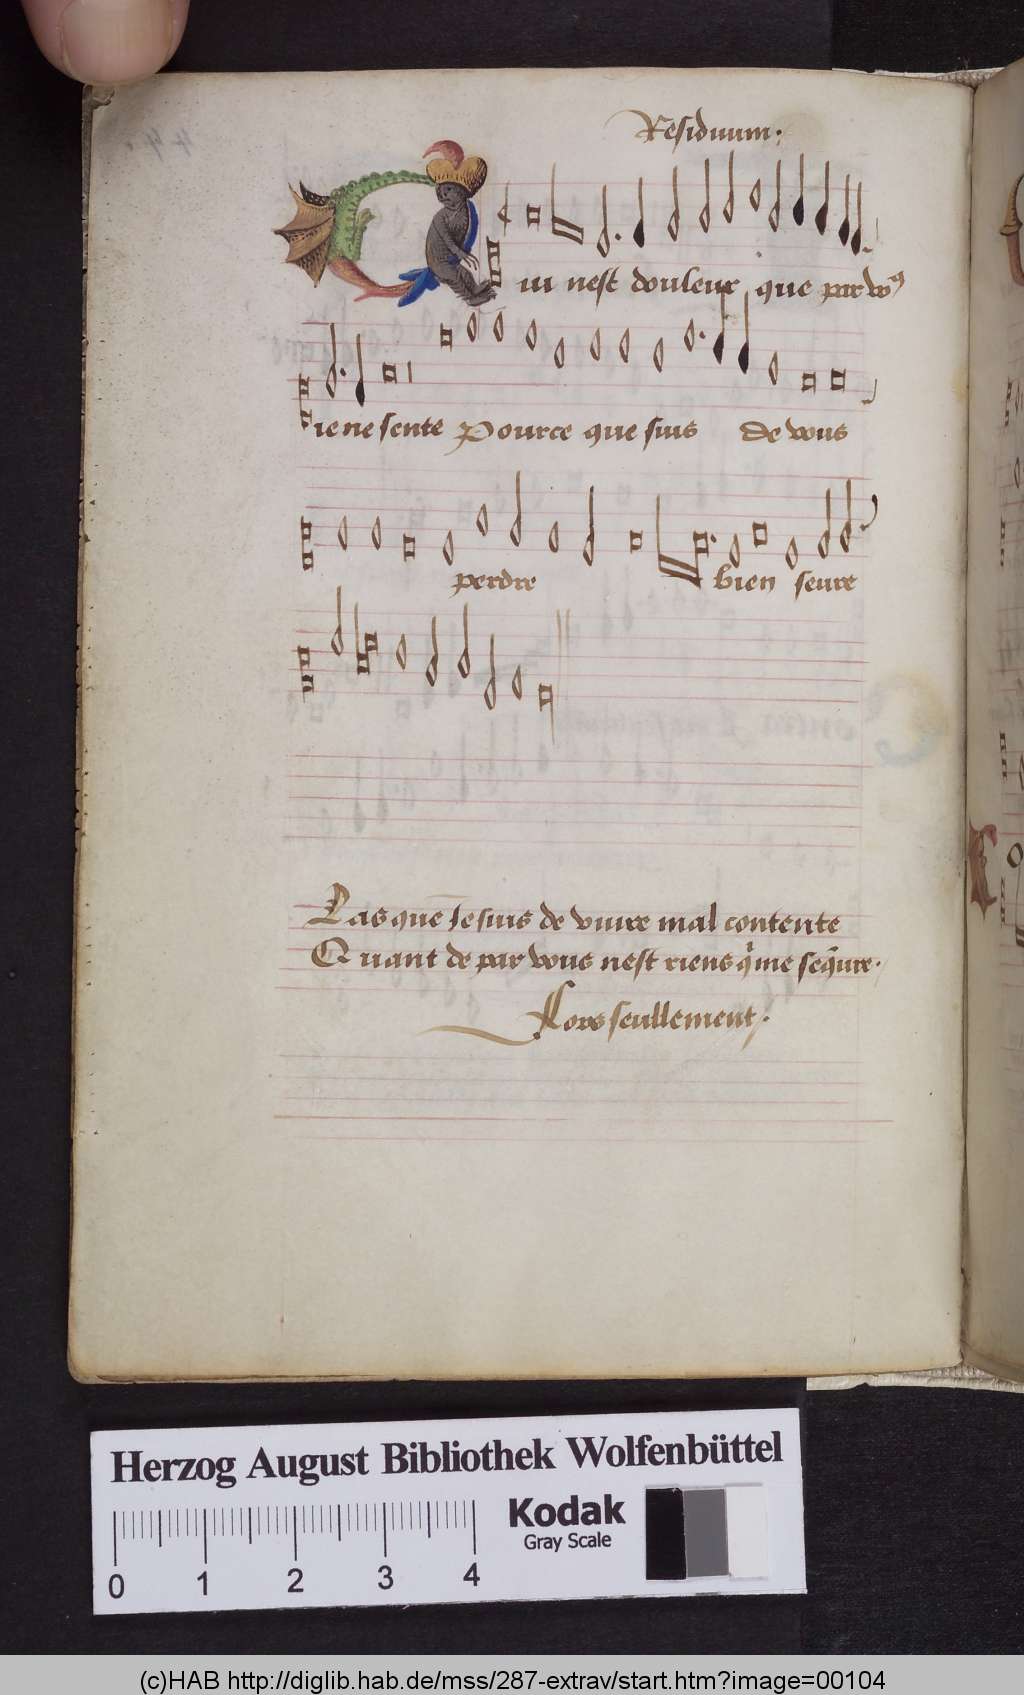 Residuum.
Quil nest douleur que par voꝰ
ie ne sente Pource que suis de vous
perdre bien seure
Las que Ie suis de viure mal contente
Quant de par vous nest riens q̃ me seq̃ure.
Lors seullement.
Herzog August Bibliothek Wolfenbüttel
Kodak
Gray Scale
0 1 2 3 4
(c)HAB http://diglib.hab.de/mss/287-extrav/start.htm?image=00104